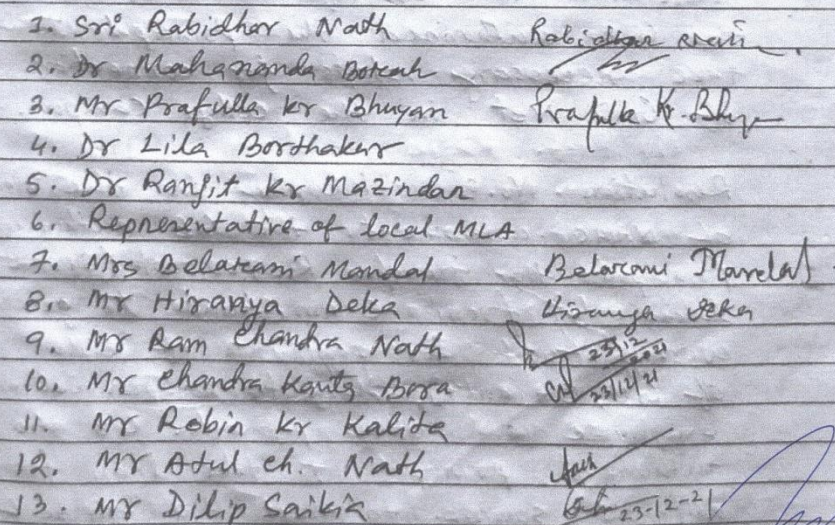 1. Sri Rabidhar Nath Rabidhar Nath
2. Dr Mahananda Borah
3. Mr Prafulla kr Bhuyan Prafulla Kr. Bhuyan
4. Dr Lila Borthakur
5. Dr Ranjit kr Mazindar
6. Representative of local MLA
7. Mrs Belarani Mondal Belarani Mandal
8. Mr Hiranya Deka Hiranya Deka
9. Mr Ram Chandra Nath 23/12 2021
10. Mr Chandra Kanta Bora 23/12/21
11. Mr Robin Kr Kalita
12. Mr Atul ch. Nath
13. Mr Dilip Saikia 23-12-21